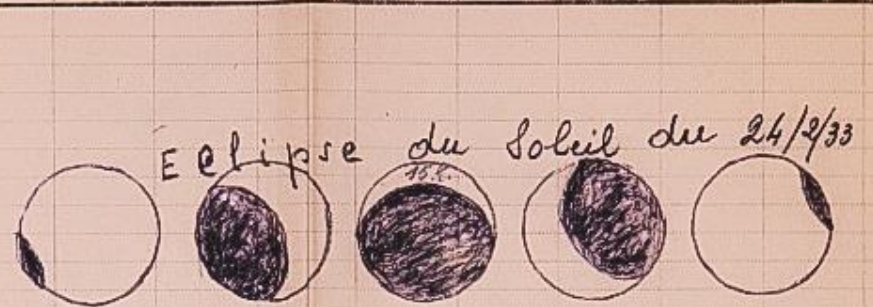 Eclipse du Soleil du 24/2/33